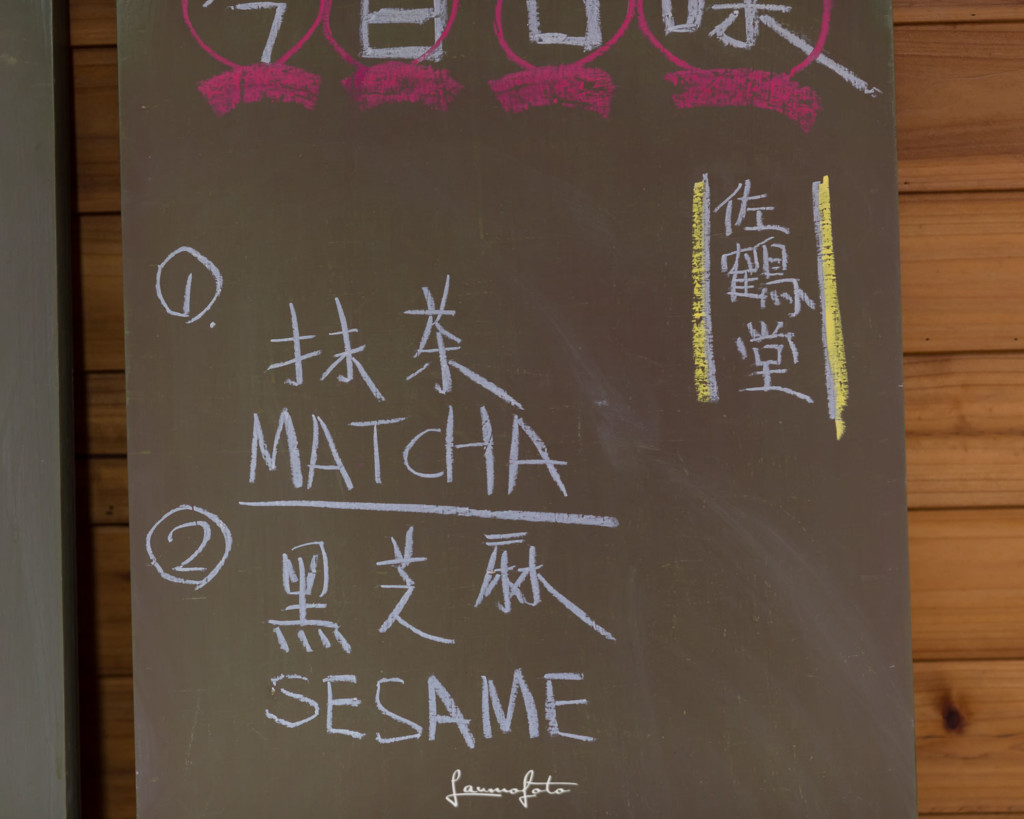 今日口味
佐鶴堂
1.
抹茶
MATCHA
2
黑芝麻
SESAME
Laumofoto